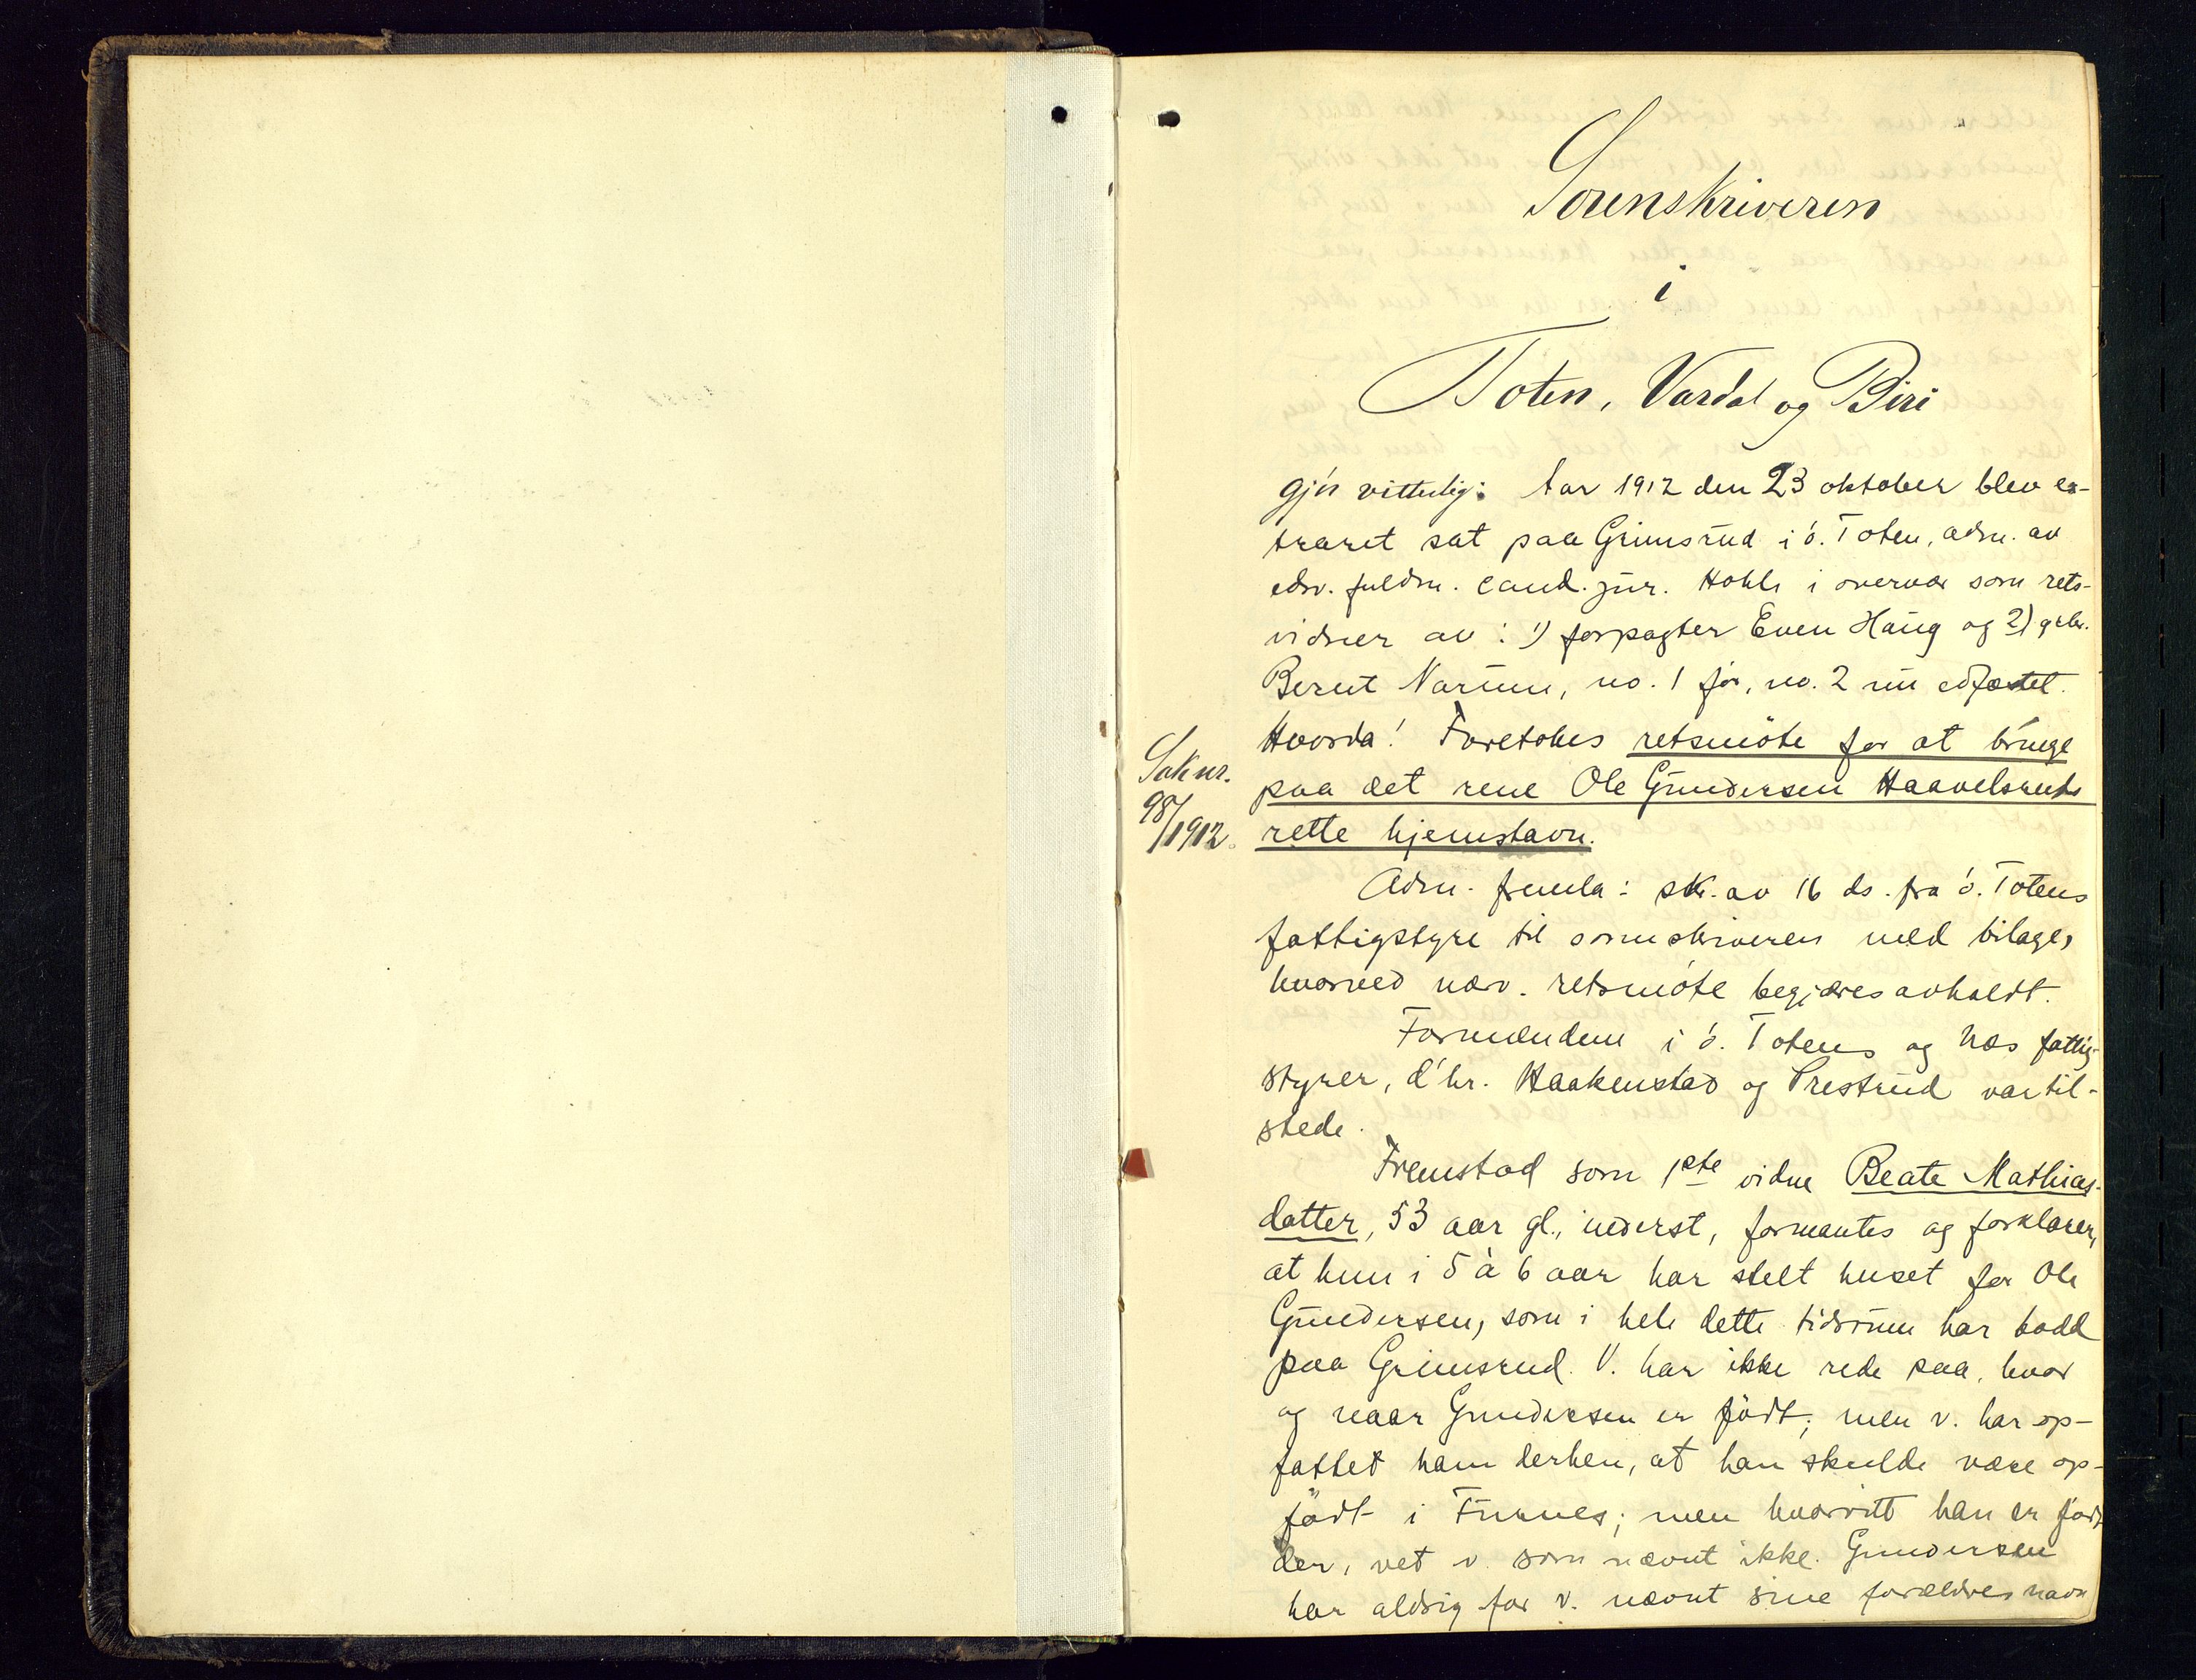 Sorenskriveren
i
Toten, Vardal og Biri
gjør vitterlig: Aar 1912 den 23 oktober blev ex-
traret sat paa Grimsrud i ö. Toten, adm. av
edsv. fuldm. cand. jur. Hohle i overvær som rets-
vidner av: 1) forpagter Even Haug og 2) grbr.
Bernt Narum, no. 1 før, no. 2 nu edfæstet.
Hvorda! Foretokes retsmöte for at bringe
paa det rene Ole Gundersen Haavelsruds
rette hjemstavn.
Sak nr.
98/1912.
Adm. fremla: skr. av 16 ds. fra ö. Totens
fattigstyre til sorenskriveren med bilage,
hvorved nærv. retsmöte begjæres avholdt.
Formændene i ö. Totens og Næs fattig-
styrer, d'hr. Haakenstad og Prestrud var til-
stede.
Fremstod som 1ste vidne Beate Mathias-
datter, 53 aar gl., inderst, formantes og forklarer,
at hun i 5 à 6 aar har stelt huset for Ole
Gundersen, som i hele dette tidsrum har bodd
paa Grimsrud. V. har ikke rede paa, hvor
og naar Gundersen er født; men v. har op-
fattet ham derhen, at han skulde være op-
födt i Furnes; men hvorvitt han er födt
der, vet v. som nævnt ikke. Gundersen
har aldrig for v. nævnt sine forældres navn